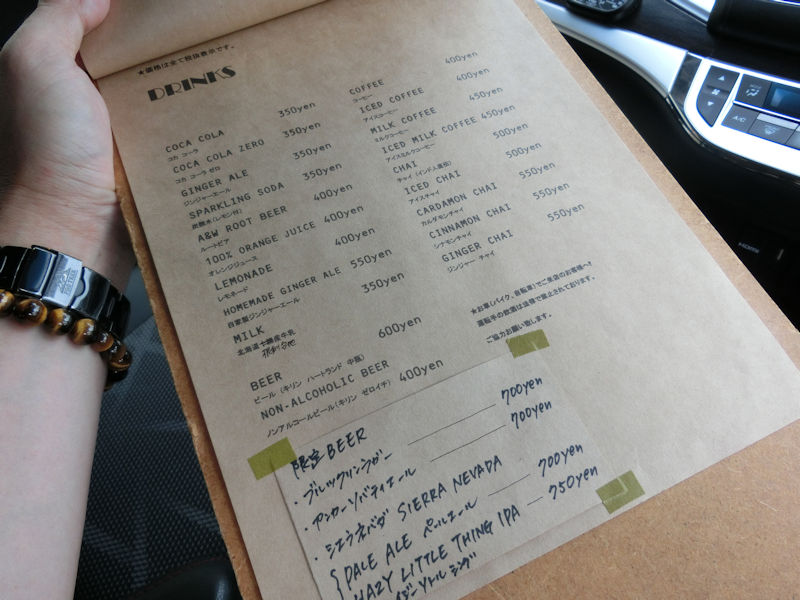 ★価格は全て税抜表示です。
DRINKS
COCA COLA 350yen
コカ コーラ
COCA COLA ZERO 350yen
コカ コーラ ゼロ
GINGER ALE 350yen
ジンジャーエール
SPARKLING SODA 350yen
炭酸水(レモン付)
A&W ROOT BEER 400yen
ルートビア
100% ORANGE JUICE 400yen
オレンジジュース
LEMONADE 400yen
レモネード
HOMEMADE GINGER ALE 550yen
自家製ジンジャーエール
MILK 350yen
北海道十勝産牛乳
BEER 600yen
ビール (キリン ハートランド 中瓶)
NON-ALCOHOLIC BEER 400yen
ノンアルコールビール(キリン ゼロイチ)
COFFEE 400yen
コーヒー
ICED COFFEE 400yen
アイスコーヒー
MILK COFFEE 450yen
ミルクコーヒー
ICED MILK COFFEE 450yen
アイスミルクコーヒー
CHAI 500yen
チャイ (インド人直伝)
ICED CHAI 500yen
アイスチャイ
CARDAMON CHAI 550yen
カルダモンチャイ
CINNAMON CHAI 550yen
シナモンチャイ
GINGER CHAI 550yen
ジンジャー チャイ
★お車(バイク、自転車)でご来店のお客様へ!
運転手の飲酒は法律で禁止されております。
ご協力お願い致します。
限定BEER
・ブルックリンラガー 700yen
・アンカーリバティエール 700yen
・シエラネバダ SIERRA NEVADA
PALE ALE ペールエール 700yen
HAZY LITTLE THING IPA 750yen
HDMI
A/C